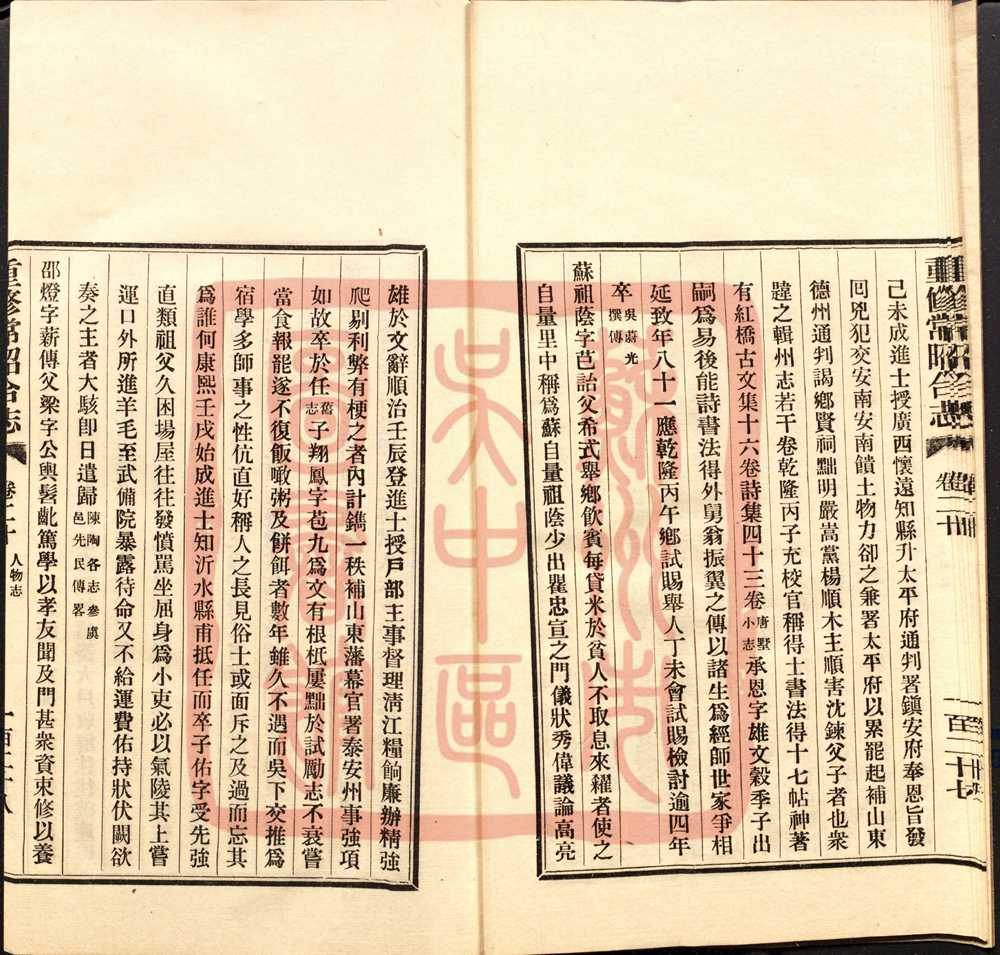 重修常昭合志 卷二十 一百二十七
己未成進士授廣西懷遠知縣升太平府通判署鎮安府奉恩旨發
回兇犯交安南安南饋土物力卻之兼署太平府以累罷起補山東
德州通判謁鄉賢祠黜明嚴嵩黨楊順木主順害沈鍊父子者也衆
韙之輯州志若干卷乾隆丙子充校官稱得士書法得十七帖神著
有紅橋古文集十六卷詩集四十三卷唐墅小志承恩字雄文穀季子出
嗣爲易後能詩書法得外舅翁振翼之傳以諸生爲經師世家爭相
延致年八十一應乾隆丙午鄉試賜舉人丁未會試賜檢討逾四年
卒吳蔣光撰傳
蘇祖陰字芑詒父希式舉鄉飲賓每貸米於貧人不取息來糴者使之
自量里中稱爲蘇自量祖陰少出瞿忠宣之門儀狀秀偉議論高亮
雄於文辭順治壬辰登進士授戶部主事督理淸江糧餉廉辦精強
爬剔利弊有梗之者內計鐫一秩補山東藩幕官署泰安州事強項
如故卒於任舊志子翔鳳字苞九爲文有根柢屢黜於試勵志不衰嘗
當食報罷遂不復飯噉粥及餠餌者數年雖久不遇而吳下交推爲
宿學多師事之性伉直好稱人之長見俗士或面斥之及過而忘其
爲誰何康熙壬戌始成進士知沂水縣甫抵任而卒子佑字受先強
直類祖父久困場屋往往發憤罵坐屈身爲小吏必以氣陵其上嘗
運口外所進羊毛至武備院暴露待命又不給運費佑持狀伏闕欲
奏之主者大駭卽日遣歸陳陶各志參虞邑先民傳畧
邵燈字薪傳父梁字公輿髫齔篤學以孝友聞及門甚衆資束修以養
重修常昭合志 卷二十 人物志 一百二十八